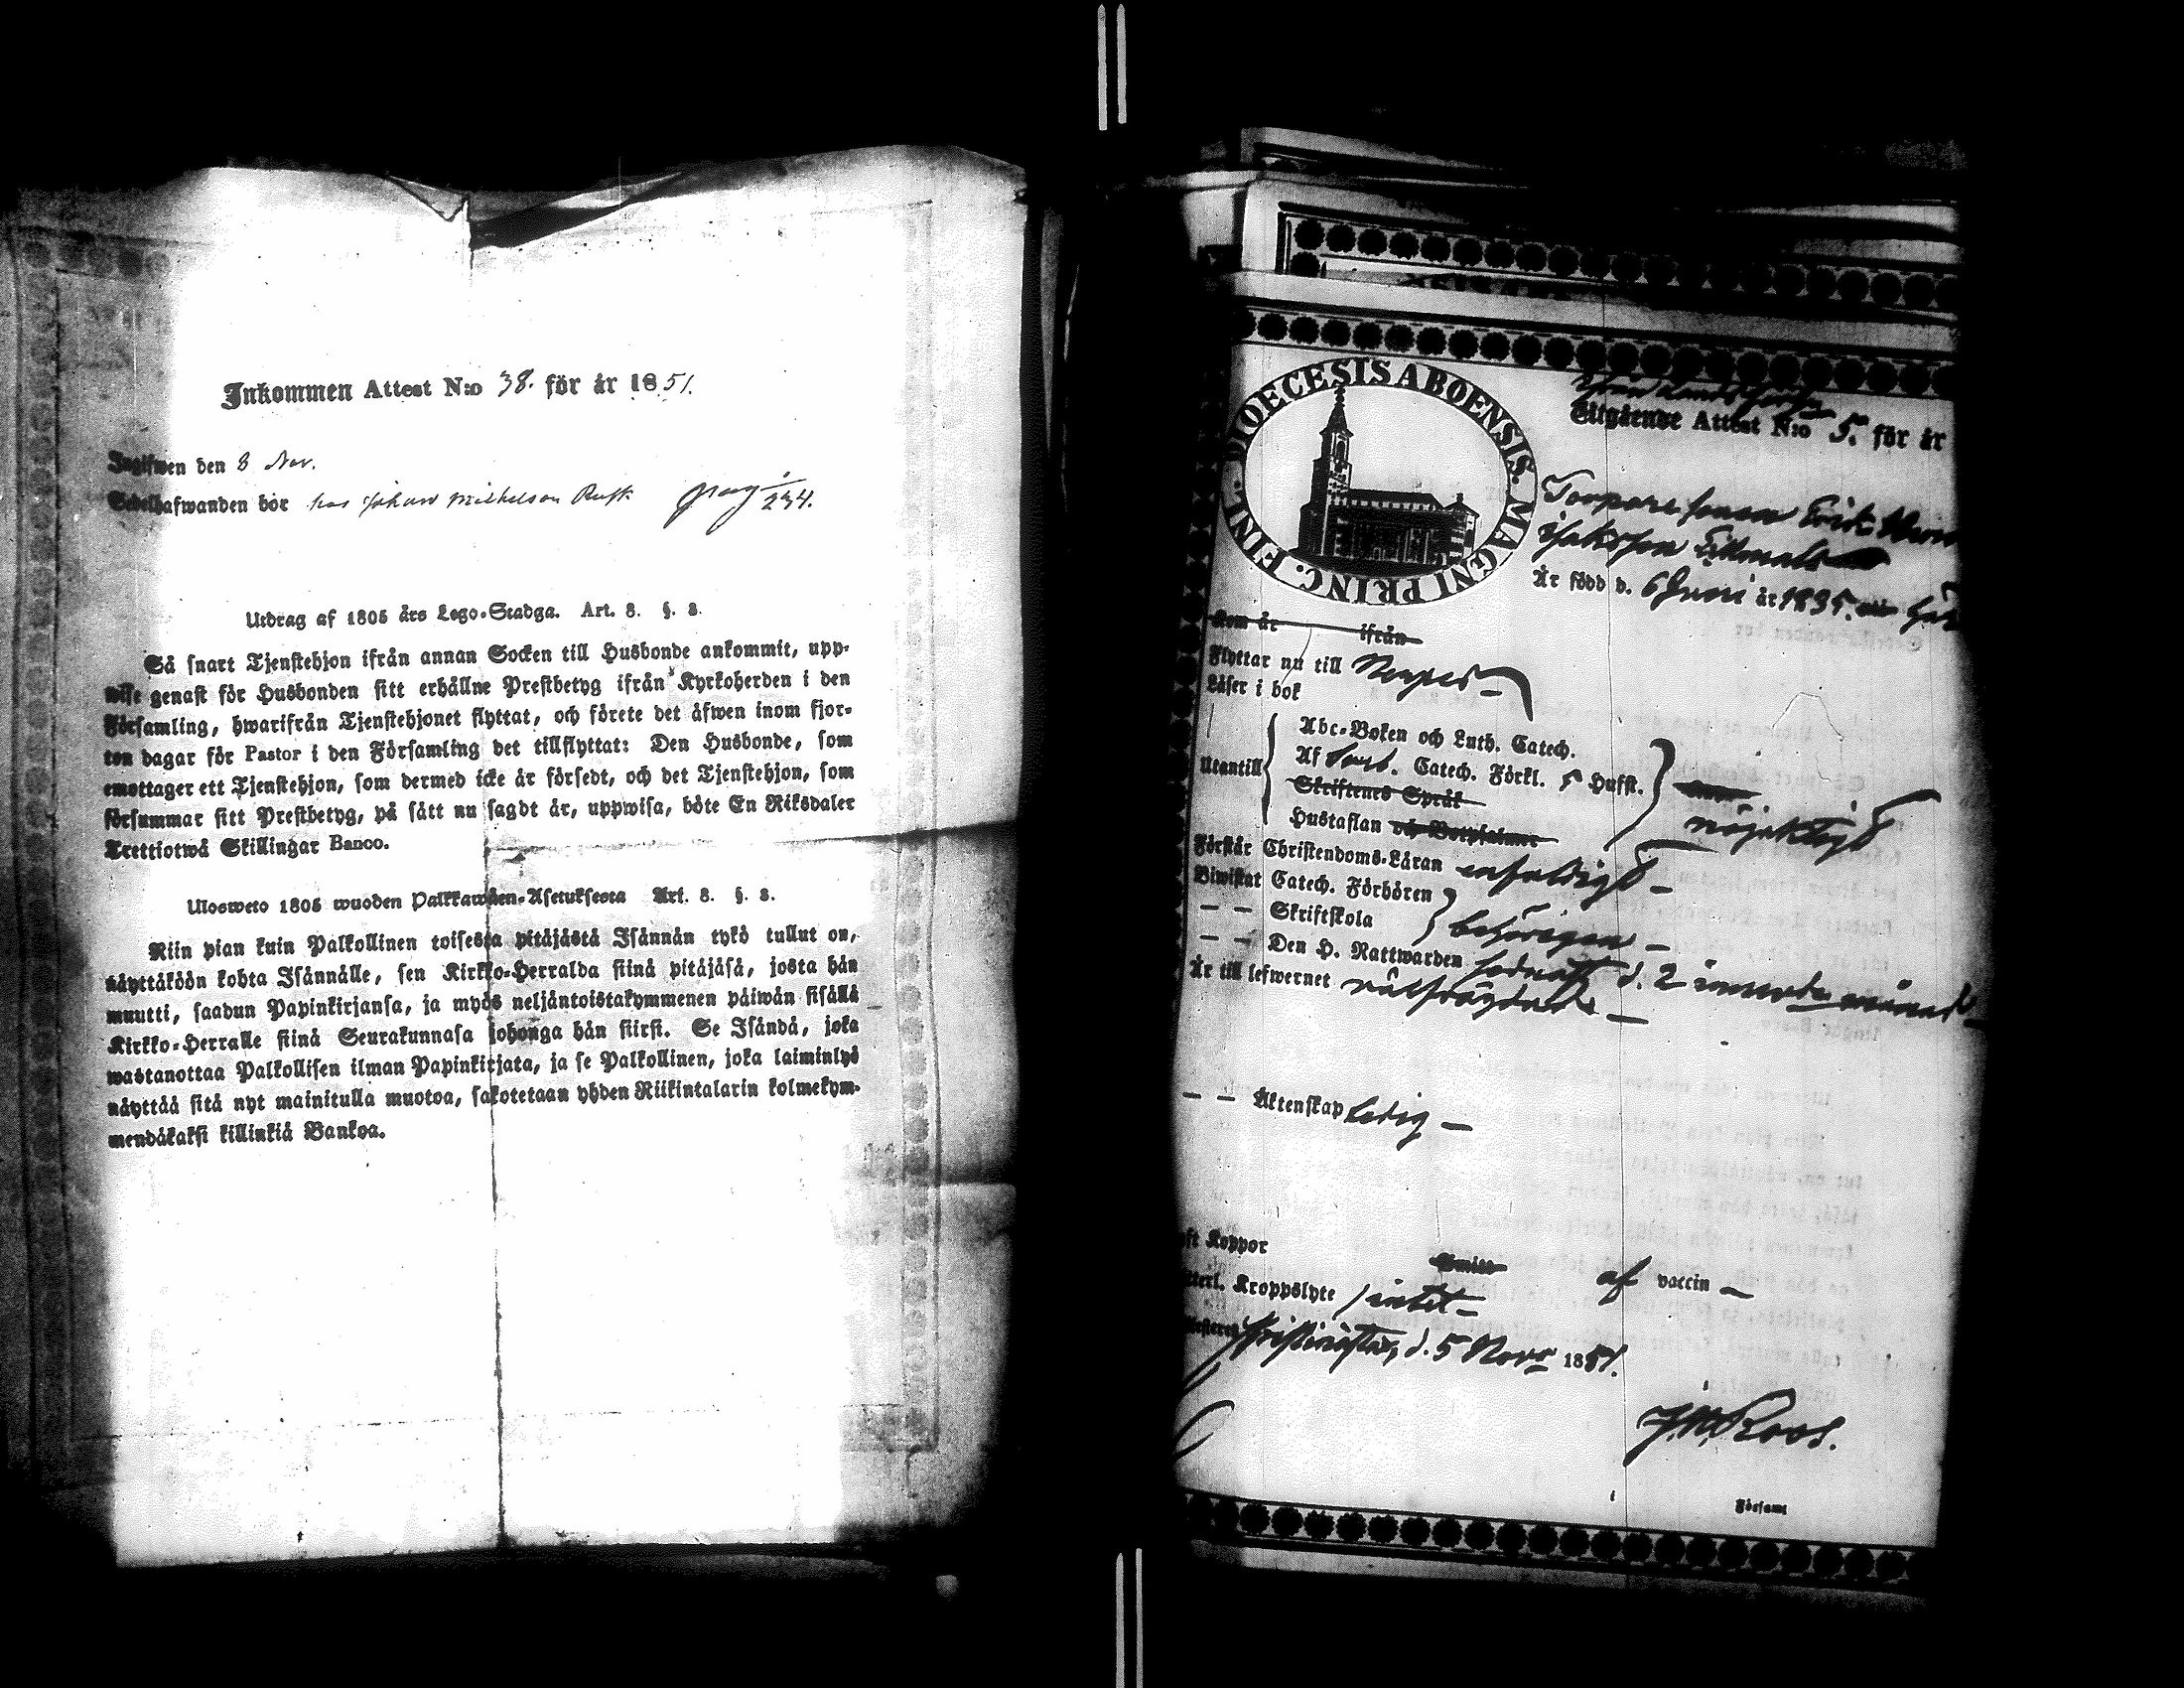 Inkommen Attest N:o 38. för år 1851.
Ingifwen den 8 Nov.
Sedelhafwanden bor hos Johan Michelson Rusk pag 234.
Utdrag af 1805 års Lego-Stadga. Art. 8. §. 2.
Så snart Tjenstehjon ifrån annan Socken till Husbonde ankommit, upp-
wise genast för Husbonden sitt erhållne Prestbetyg ifrån Kyrkoherden i den
Församling, hwarifrån Tjenstehjonet flyttat, och förete det äfwen inom fjor-
ton dagar för Pastor i den Församling det tillflyttat: Den Husbonde, som
emottager ett Tjenstehjon, som dermed icke är försedt, och det Tjenstehjon, som
försummar sitt Prestbetyg, på sätt nu sagdt är, uppwisa, böte En Riksdaler
Trettiotwå Skillingar Banco.
Ulosweto 1805 wuoden Palkkawäen-Asetuksesta Art. 8. §. 2.
Niin pian kuin Palkollinen toisesta pitäjästä Isännän tykö tullut on,
näyttäköön kohta Isännälle, sen Kirkko-Herralda siinä pitäjäsä, josta hän
muutti, saadun Papinkirjansa, ja myös neljäntoistakymmenen päiwän sisällä
Kirkko-Herralle siinä Seurakunnasa johonga hän siirsi. Se Isändä, joka
wastanottaa Palkollisen ilman Papinkirjata, ja se Palkollinen, joka laiminlyö
näyttää sitä nyt mainitulla muotoa, sakotetaan yhden Riikintalarin kolmekym-
mendäkaksi killinkiä Bankoa.
DIOECESIS ABOENSIS. MAGNI PRINC. FINL.
Utgående Attest N:o 5. för år
Torpare sonen Erik
Isaksson
Är född d. 6 Juni år 1835.
Kom år ifrån
Flyttar nu till
Läser i bok
Utantill
Abc-Boken och Luth. Catech.
Af Catech. Förkl. 5 Hufst.
Skriftenes Språk
Hustaflan och Botpsalmer
nöjaktigt
Förstår Christendoms-Läran enfaldigt
Biwistat Catech. Förhören
— — Skriftskola
behörigen
— — Den H. Nattwarden sednast d. 2 innevde månad
Är till lefwernet välfrägdad
— — Äktenskap ledig
Haft Koppor af vaccin
Ytterl. Kroppslyte intet
d. 5 Novr 1851.
J. W. Roos.
Församl